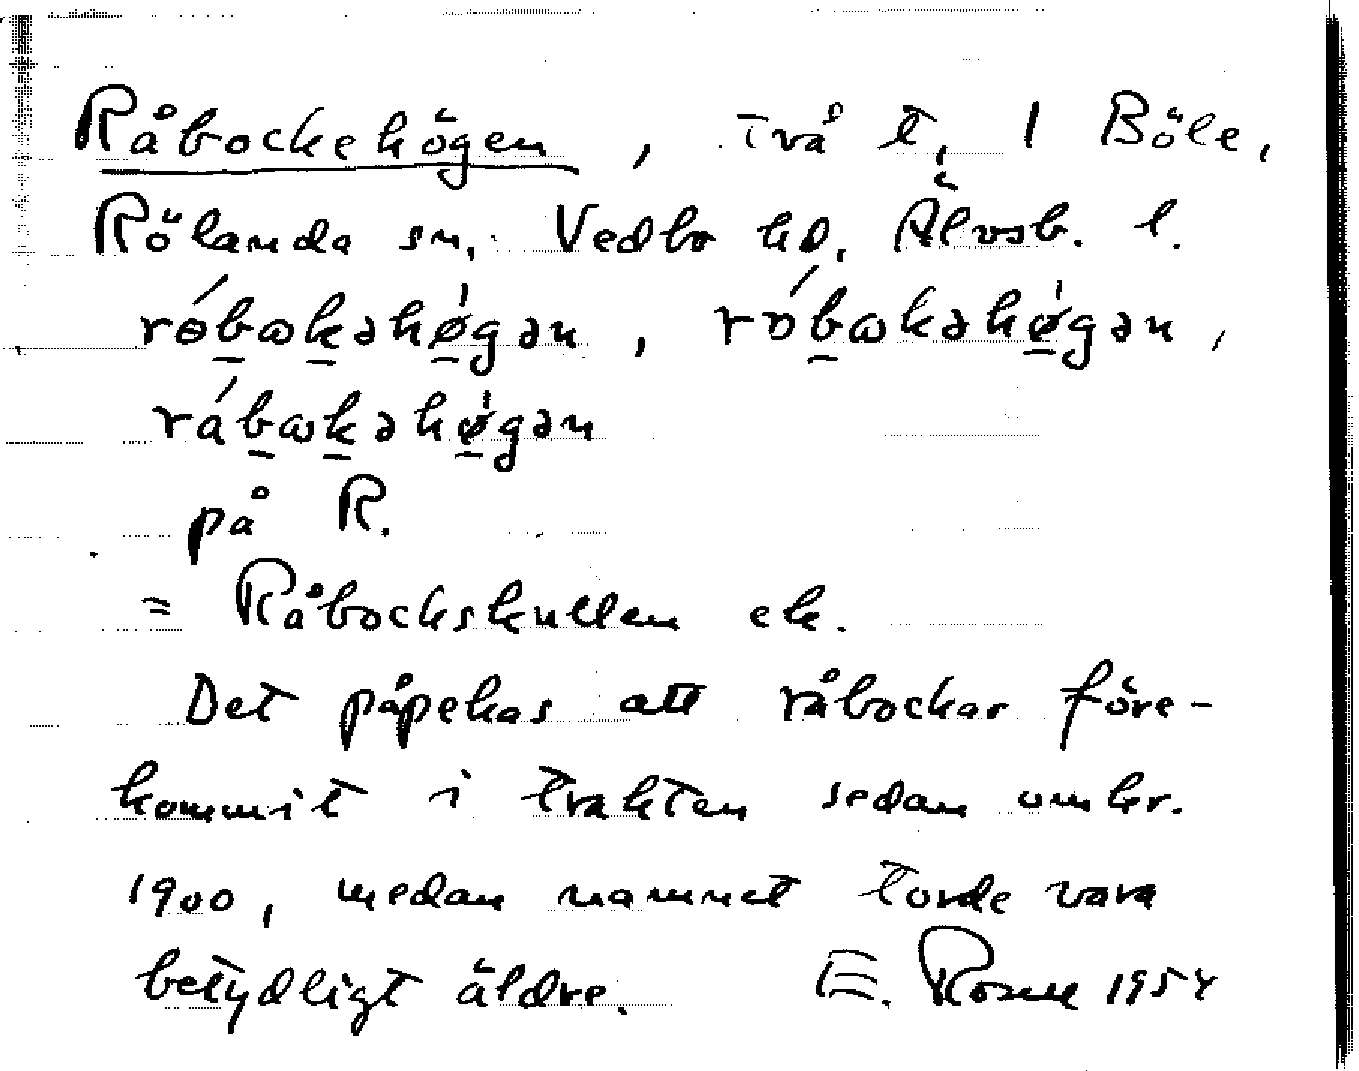 Råbockehögen, två t, 1 Böle,
Rölanda sn, Vedbo hd, Älvsb. l.
róbωkəhø̍gən, róbωkəhø̍gən,
rábωkəhø̍gən
på R.
= Råbockskullen ek.
Det påpekas att råbockar före-
kommit i trakten sedan omkr.
1900, medan namnet torde vara
betydligt äldre. E. 1954